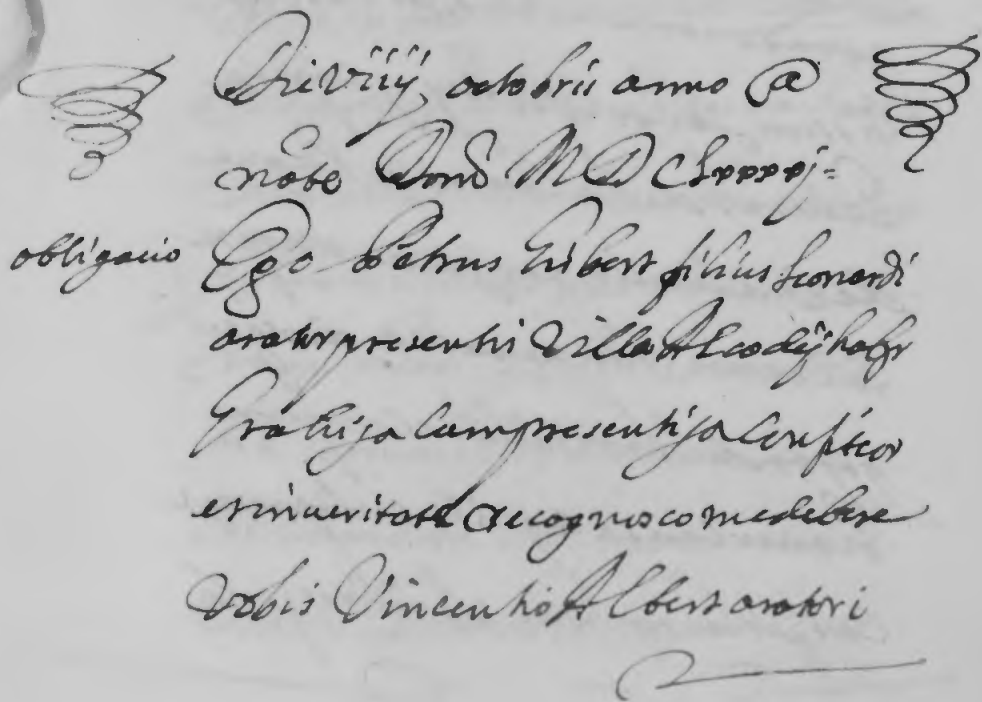 Die viiij octobris anno a
nate Domi M D Clxxxxj
obligacio Ego Petrus Gibert filius Leonardi
arator presentis ville Alcodij habr
Gratis ja cum presentis ja confiteor
et in veritate recognosco me debere
vobis Vincentio Albert aratori